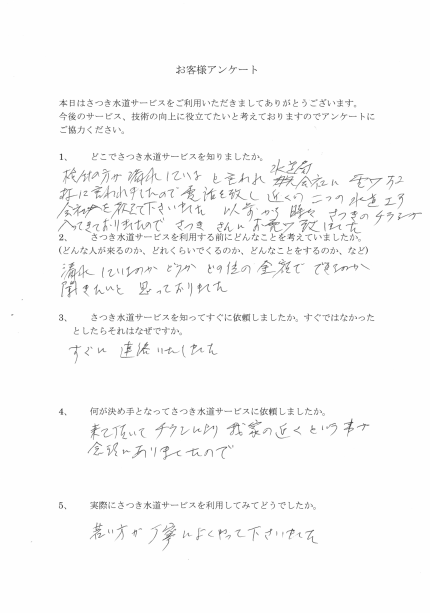 お客様アンケート
本日はさつき水道サービスをご利用いただきましてありがとうございます。
今後のサービス、技術の向上に役立てたいと考えておりますのでアンケートに
ご協力ください。
1、 どこでさつき水道サービスを知りましたか。
検針の方が漏れていると言われ 水道局
に言われましたので電話を致し近くの二つの水道工事
会社を教えて下さいました 以前から時々さつきのチラシが
入ってきておりましたのでさつきさんにお電話致しました
2、 さつき水道サービスを利用する前にどんなことを考えていましたか。
(どんな人が来るのか、どれくらいでくるのか、どんなことをするのか、など)
漏れているのかどうか どの位の金額でできるのか
聞きたいと思っておりました
3、 さつき水道サービスを知ってすぐに依頼しましたか。すぐではなかった
としたらそれはなぜですか。
すぐに連絡いたしました
4、 何が決め手となってさつき水道サービスに依頼しましたか。
来て頂いてチラシにより我家の近くという事が
念頭にありましたので
5、 実際にさつき水道サービスを利用してみてどうでしたか。
若い方が丁寧によくやって下さいました